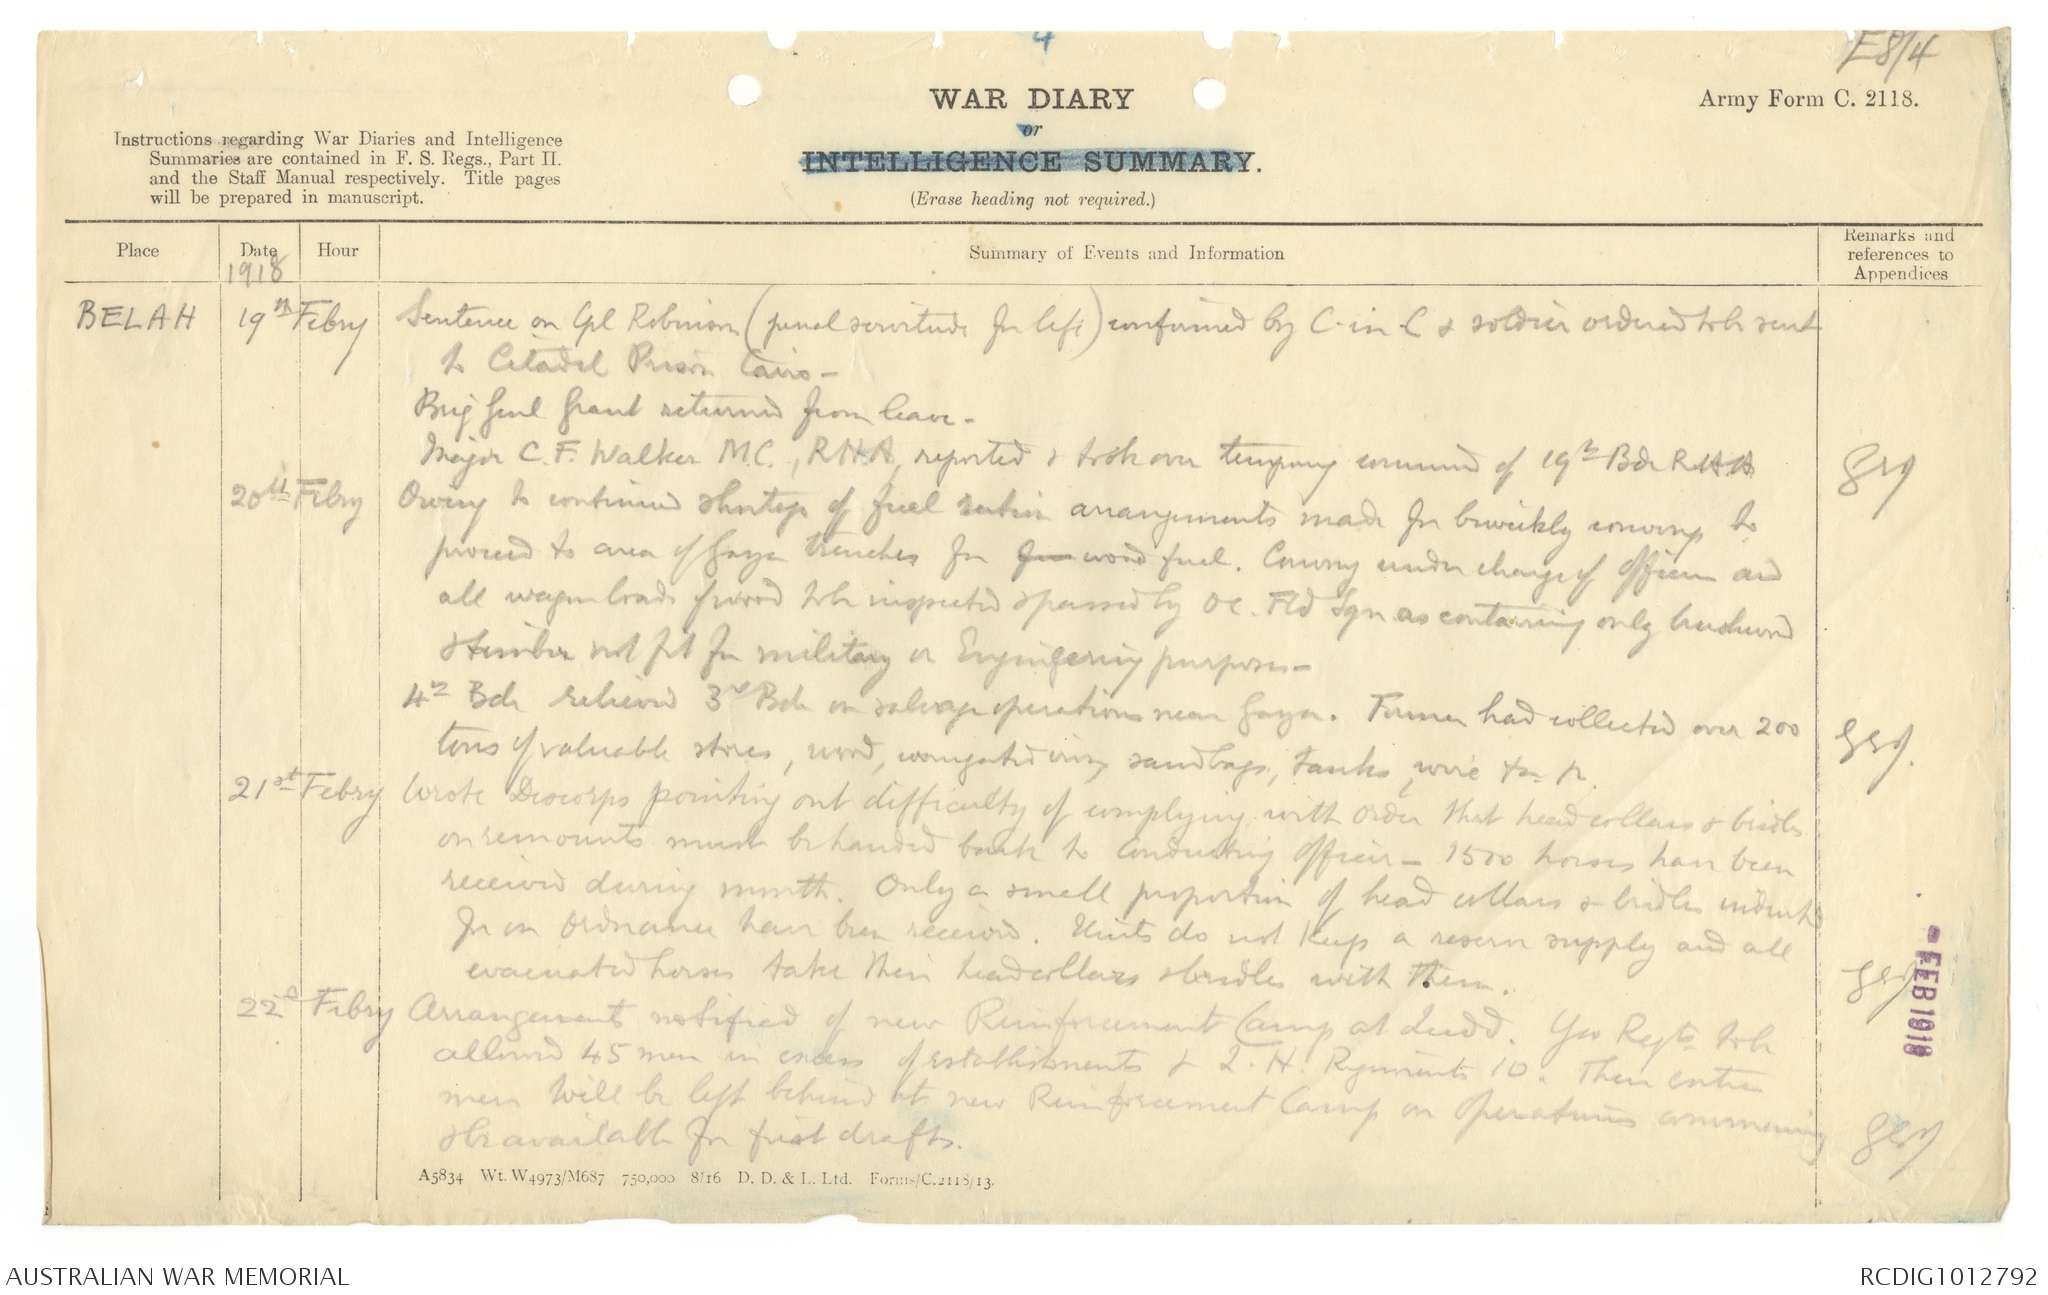 4
E8/4
WAR DIARY
or
INTELLIGENCE SUMMARY.
(Erase heading not required.)
Army Form C. 2118.
Instructions regarding War Diaries and Intelligence
Summaries are contained in F. S. Regs., Part II.
and the Staff Manual respectively. Title pages
will be prepared in manuscript.
Place
Date
1918
Hour
Summary of Events and Information
Remarks and
references to
Appendices
BELAH 19th Febry Sentence on Cpl Robinson (penal servitude for life) confirmed by C-in-C & soldier ordered to be sent
to Citadel Prison Cairo -
Brig Genl Grant returned from leave -
Major C.F. Walker M.C., RHA, reported & took over temporary command of 19th Bde RHA
20th Febry Owing to continued shortage of fuel ration arrangements made for biweekly convoys to
proceed to area of Gaza trenches for wood fuel. Convoy under charge of officer and
all wagon loads of wood to be inspected & passed by OC. Fld Sqn as containing only brushwood
& timber not fit for military or Engineering purposes -
4th Bde relieved 3rd Bde on salvage operations near Gaza. Former had collected over 200
tons of valuable stores, wood, corrugated iron, sandbags, tanks, wire
21st Febry Wrote Descorps pointing out difficulty of complying with order that headcollars & bridles
on remounts must be handed back to conducting officer - 1500 horses have been
received during month. Only a small proportion of head collars & bridles indented
for on Ordnance have been received. Units do not keep a reserve supply and all
evacuated horses take their headcollars & bridles with them.
22nd Febry Arrangements notified of new Reinforcement Camp at Ludd. Yeo Regts to be
allowed 45 men in excess of establishments & L.H. Regiments 10. These extra
men will be left behind at new Reinforcement Camp on operations commencing
& be available for first drafts.
FEB 1918
A5834 Wt. W4973/M687 750,000 8/16 D. D. & L. Ltd. Forms/C.2118/13.
AUSTRALIAN WAR MEMORIAL
RCDIG1012792